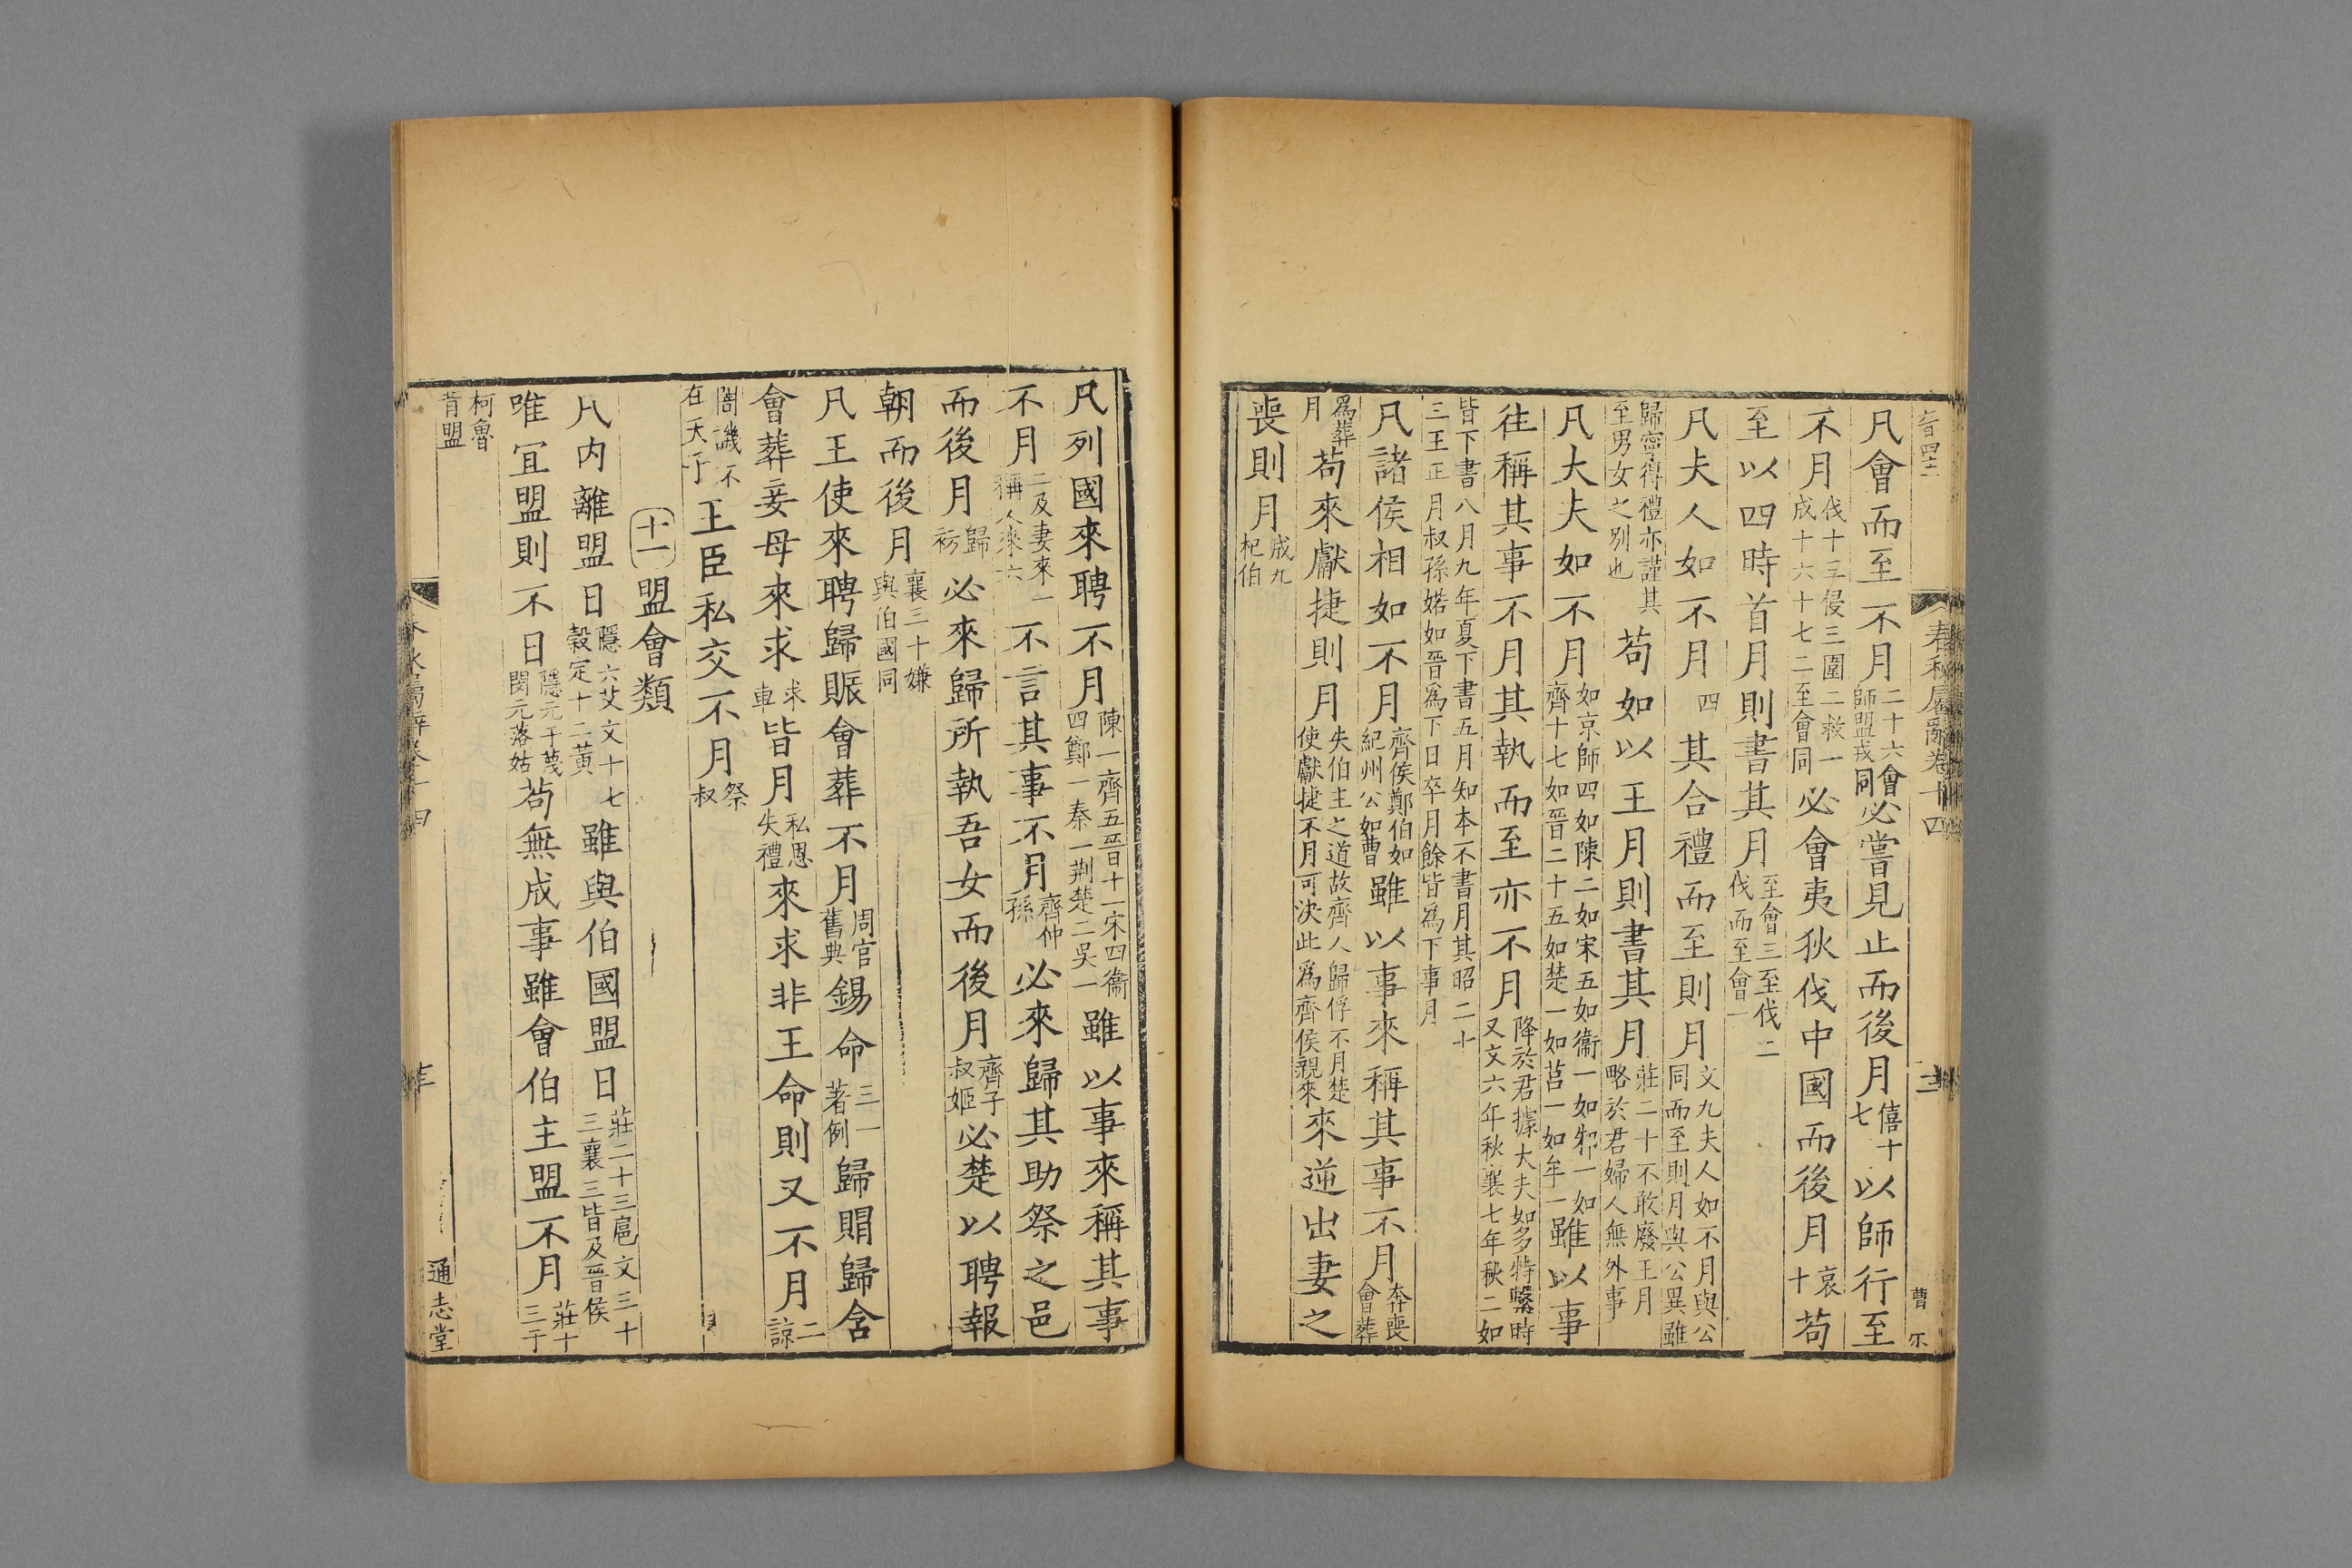 春秋屬辭卷十四
凡會而至不月二十六會師盟戎同必嘗見止而後月僖十七以師行至
不月伐十三侵三圍二救一成十六十七二至會同必會夷狄伐中國而後月哀十苟
至以四時首月則書其月至會三至伐二伐而至會一
凡夫人如不月四其合禮而至則月文九夫人如不月與公同而至則月與公異雖
歸寧得禮亦謹其至男女之別也苟如以王月則書其月莊二十不敢廢王月略於君婦人無外事
凡大夫如不月如京師四如陳二如宋五如衞一如邾一如齊十七如晉二十五如楚一如莒一如牟一雖以事
往稱其事不月其執而至亦不月降於君據大夫如多特繫時又文六年秋襄七年秋二如
皆下書八月九年夏下書五月知本不書月其昭二十三王正月叔孫婼如晉爲下日卒月餘皆爲下事月
凡諸侯相如不月齊侯鄭伯如紀州公如曹雖以事來稱其事不月奔喪會葬
爲葬月苟來獻捷則月失伯主之道故齊人歸俘不月楚使獻捷不月可決此爲齊侯親來來逆出妻之
喪則月成九杞伯
凡列國來聘不月陳一齊五晉十一宋四衞四鄭一秦一荆楚二吳一雖以事來稱其事
不月二及妻來一稱人來六不言其事不月齊仲孫必來歸其助祭之邑
而後月歸祊必來歸所執吾女而後月齊子叔姬必楚以聘報
朝而後月襄三十嫌與伯國同
凡王使來聘歸賑會葬不月周官舊典錫命三一著例歸賵歸含
會葬妾母來求求車皆月私恩失禮來求非王命則又不月二諒
闇譏不在天子王臣私交不月祭叔
十一盟會類
凡内離盟日隱六艾文十七穀定十二黃雖與伯國盟日莊二十三扈文三十三襄三皆及晉侯
唯宜盟則不日隱元于蔑閔元落姑苟無成事雖會伯主盟不月莊十三于
柯魯背盟
通志堂